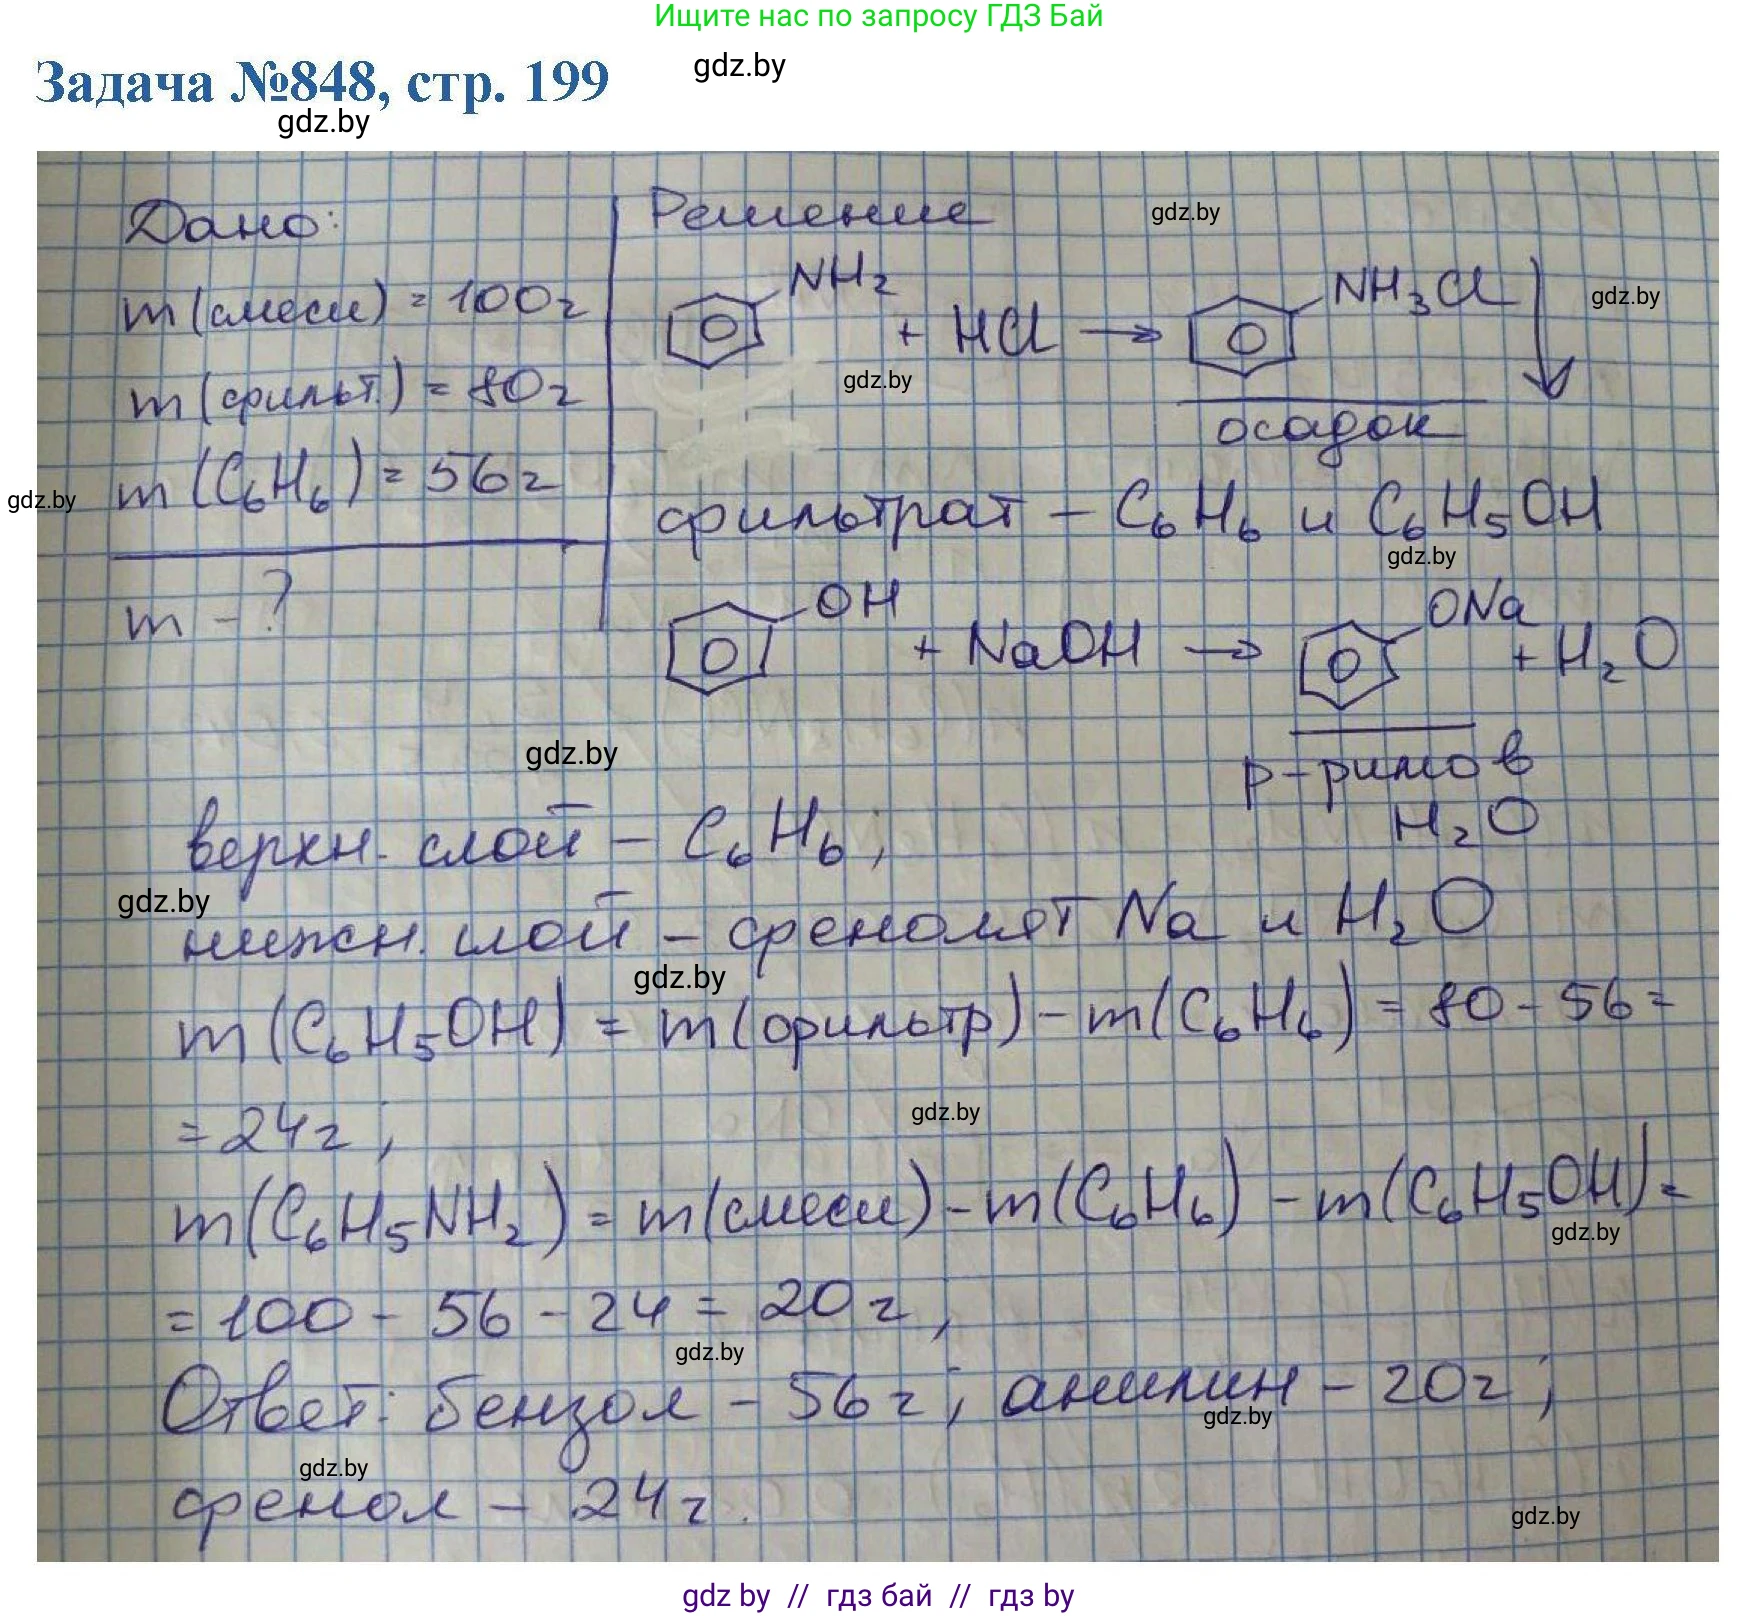 Ищите нас по запросу ГДЗ Бай
Задача №848, стр. 199
gdz.by
gdz.by
Дано:
m (смеси) = 100г
m (фильт.) = 80г
m (C₆H₆) = 56г
m - ?
Решение
gdz.by
NH₂ + HCl → NH₃Cl ↓
gdz.by
gdz.by
осадок
gdz.by
фильтрат – C₆H₆ и C₆H₅OH
gdz.by
OH + NaOH → ONa + H₂O
р-римо в
H₂O
gdz.by
верхн. слой – C₆H₆;
gdz.by
нижн. слой – фенолят Na и H₂O
gdz.by
m (C₆H₅OH) = m (фильтр) - m (C₆H₆) = 80 - 56 =
= 24г;
gdz.by
m (C₆H₅NH₂) = m (смеси) - m (C₆H₆) - m (C₆H₅OH) =
gdz.by
= 100 - 56 - 24 = 20г,
gdz.by
Ответ: бензол – 56г; анилин – 20г;
gdz.by
gdz.by
фенол – 24г.
gdz.by
gdz by // гдз бай // гдз by